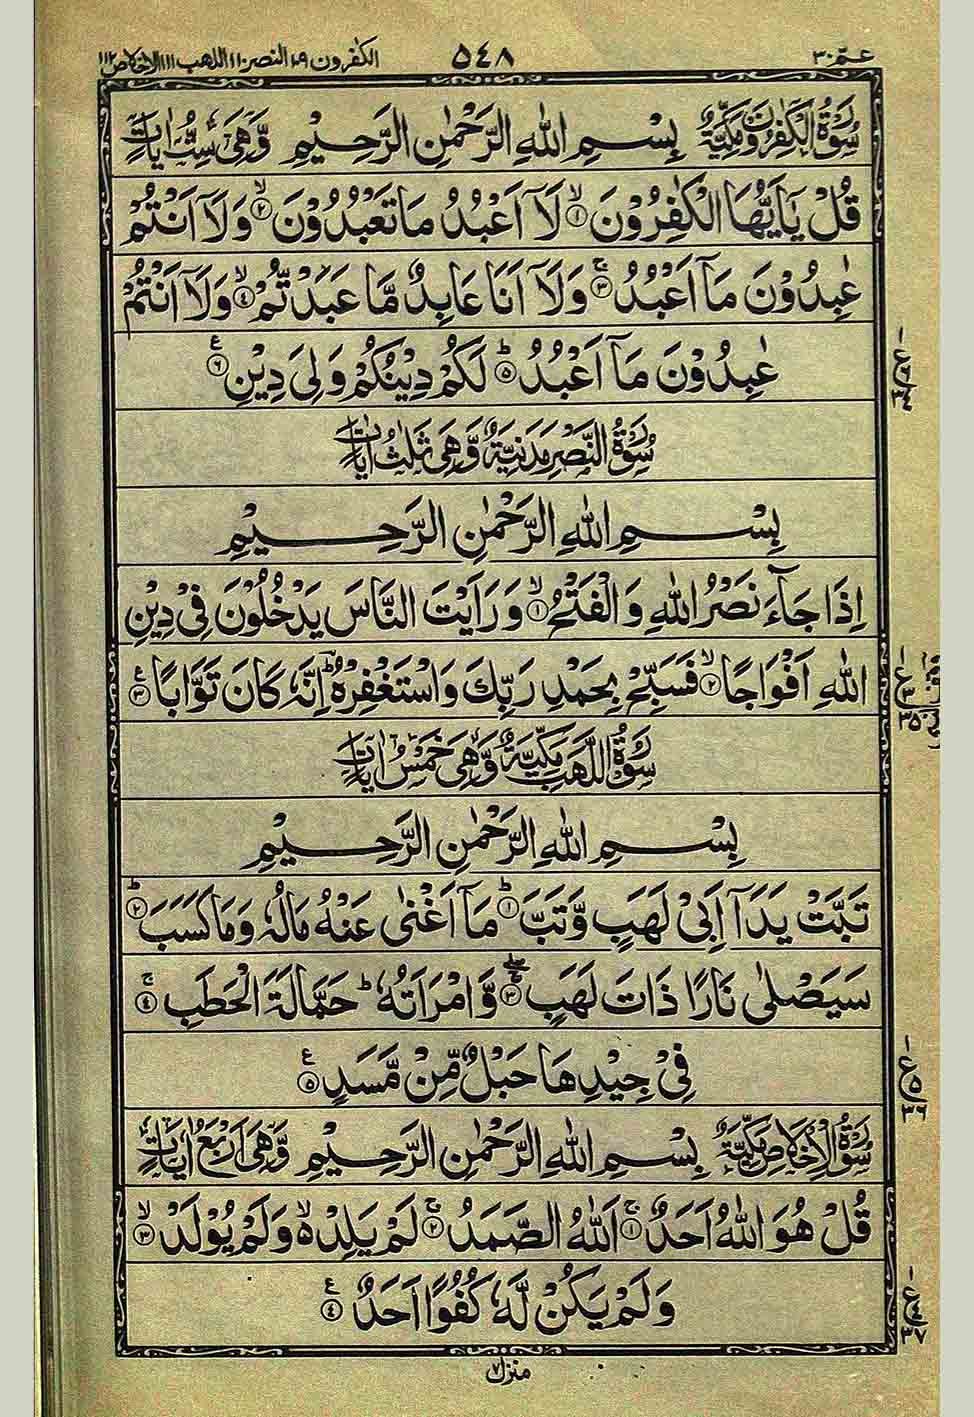 عمّ ٣٠ ٥٤٨ الكٰفرون ١٠٩ النصر ١١٠ اللهب ١١١ الاخلاص ١١٢
سُوْرَةُ الْكٰفِرُوْنَ مَكِّيَّةٌ بِسْمِ اللّٰهِ الرَّحْمٰنِ الرَّحِيْمِ وَّهِىَ سِتُّ اٰيَاتٍ
قُلْ يٰۤاَيُّهَا الْكٰفِرُوْنَ ۙ‏﴿١﴾ لَاۤ اَعْبُدُ مَا تَعْبُدُوْنَ ۙ‏﴿٢﴾ وَلَاۤ اَنْتُمْ
عٰبِدُوْنَ مَاۤ اَعْبُدُ ۚ‏﴿٣﴾ وَلَاۤ اَنَا عَابِدٌ مَّا عَبَدْتُّمْ ۙ‏﴿٤﴾ وَلَاۤ اَنْتُمْ
عٰبِدُوْنَ مَاۤ اَعْبُدُ ؕ‏﴿٥﴾ لَكُمْ دِيْنُكُمْ وَلِىَ دِيْنِ ﴿٦﴾ ع
سُوْرَةُ النَّصْرِ مَدَنِيَّةٌ وَّهِىَ ثَلٰثُ اٰيَاتٍ
بِسْمِ اللّٰهِ الرَّحْمٰنِ الرَّحِيْمِ
اِذَا جَآءَ نَصْرُ اللّٰهِ وَالْفَتْحُ ۙ‏﴿١﴾ وَرَاَيْتَ النَّاسَ يَدْخُلُوْنَ فِىْ دِيْنِ
اللّٰهِ اَفْوَاجًا ۙ‏﴿٢﴾ فَسَبِّحْ بِحَمْدِ رَبِّكَ وَاسْتَغْفِرْهُ ؕ اِنَّهٗ كَانَ تَوَّابًا ﴿٣﴾ ع
سُوْرَةُ اللَّهَبِ مَكِّيَّةٌ وَّهِىَ خَمْسُ اٰيَاتٍ
بِسْمِ اللّٰهِ الرَّحْمٰنِ الرَّحِيْمِ
تَبَّتْ يَدَاۤ اَبِىْ لَهَبٍ وَّتَبَّ ؕ‏﴿١﴾ مَاۤ اَغْنٰى عَنْهُ مَالُهٗ وَمَا كَسَبَ ؕ‏﴿٢﴾
سَيَصْلٰى نَارًا ذَاتَ لَهَبٍ ۚۖ‏﴿٣﴾ وَّامْرَاَتُهٗ ؕ حَمَّالَةَ الْحَطَبِ ۚ‏﴿٤﴾
فِىْ جِيْدِهَا حَبْلٌ مِّنْ مَّسَدٍ ﴿٥﴾ ع
سُوْرَةُ الْاِخْلَاصِ مَكِّيَّةٌ بِسْمِ اللّٰهِ الرَّحْمٰنِ الرَّحِيْمِ وَّهِىَ اَرْبَعُ اٰيَاتٍ
قُلْ هُوَ اللّٰهُ اَحَدٌ ۚ‏﴿١﴾ اَللّٰهُ الصَّمَدُ ۚ‏﴿٢﴾ لَمْ يَلِدْ ۙ وَلَمْ يُوْلَدْ ۙ‏﴿٣﴾
وَلَمْ يَكُنْ لَّهٗ كُفُوًا اَحَدٌ ﴿٤﴾ ع
منزل ٧